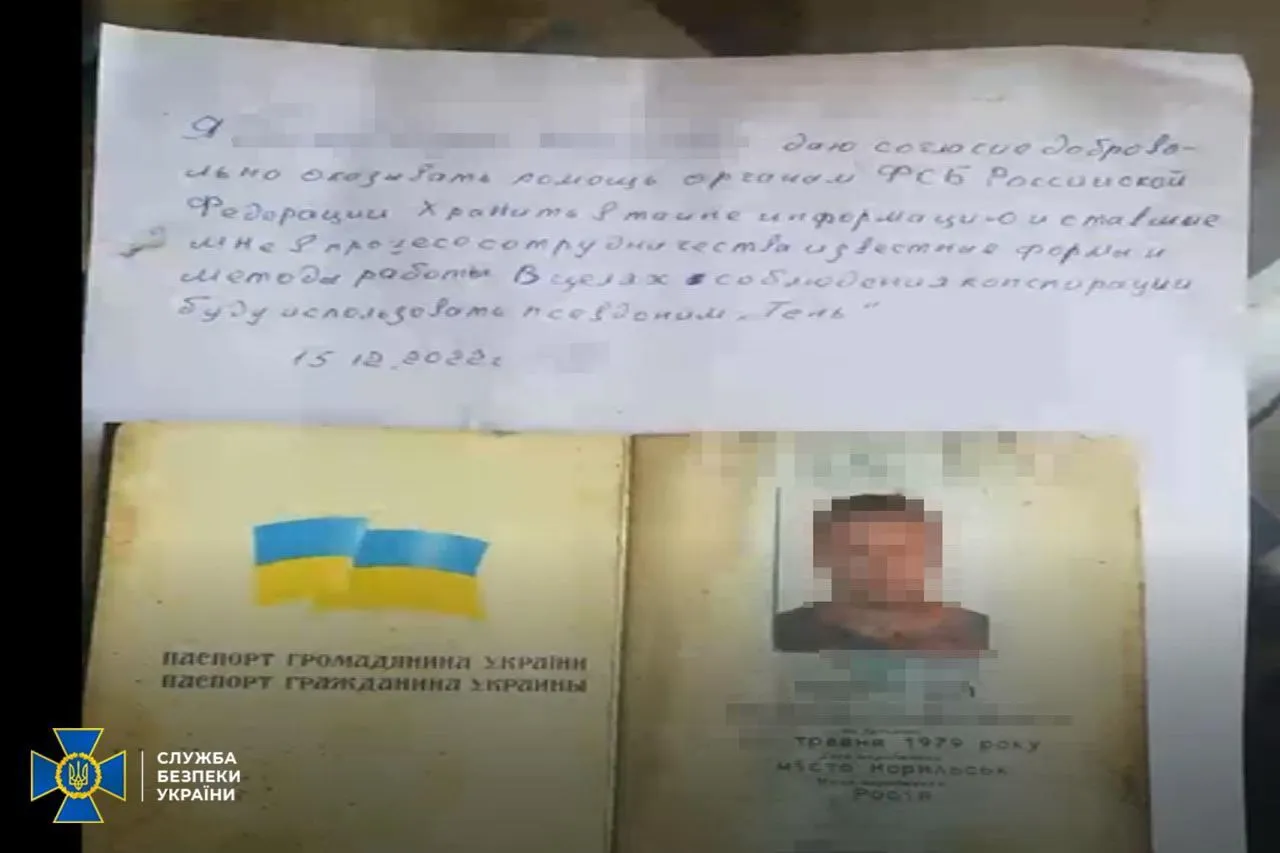 Я даю согласие доброво-
льно оказывать помощь органам ФСБ Российской
Федерации Хранить в тайне информацию и ставшие
мне в процесо сотрудничества известные формы и
методы работы В целях соблюдения конспирации
буду использовать псевдоним „Тень"
15 12.2022г
ПАСПОРТ ГРОМАДЯНИНА УКРАЇНИ
ПАСПОРТ ГРАЖДАНИНА УКРАИНЫ
травня 1979 року
місто Норильськ
Росія
СЛУЖБА
БЕЗПЕКИ
УКРАЇНИ